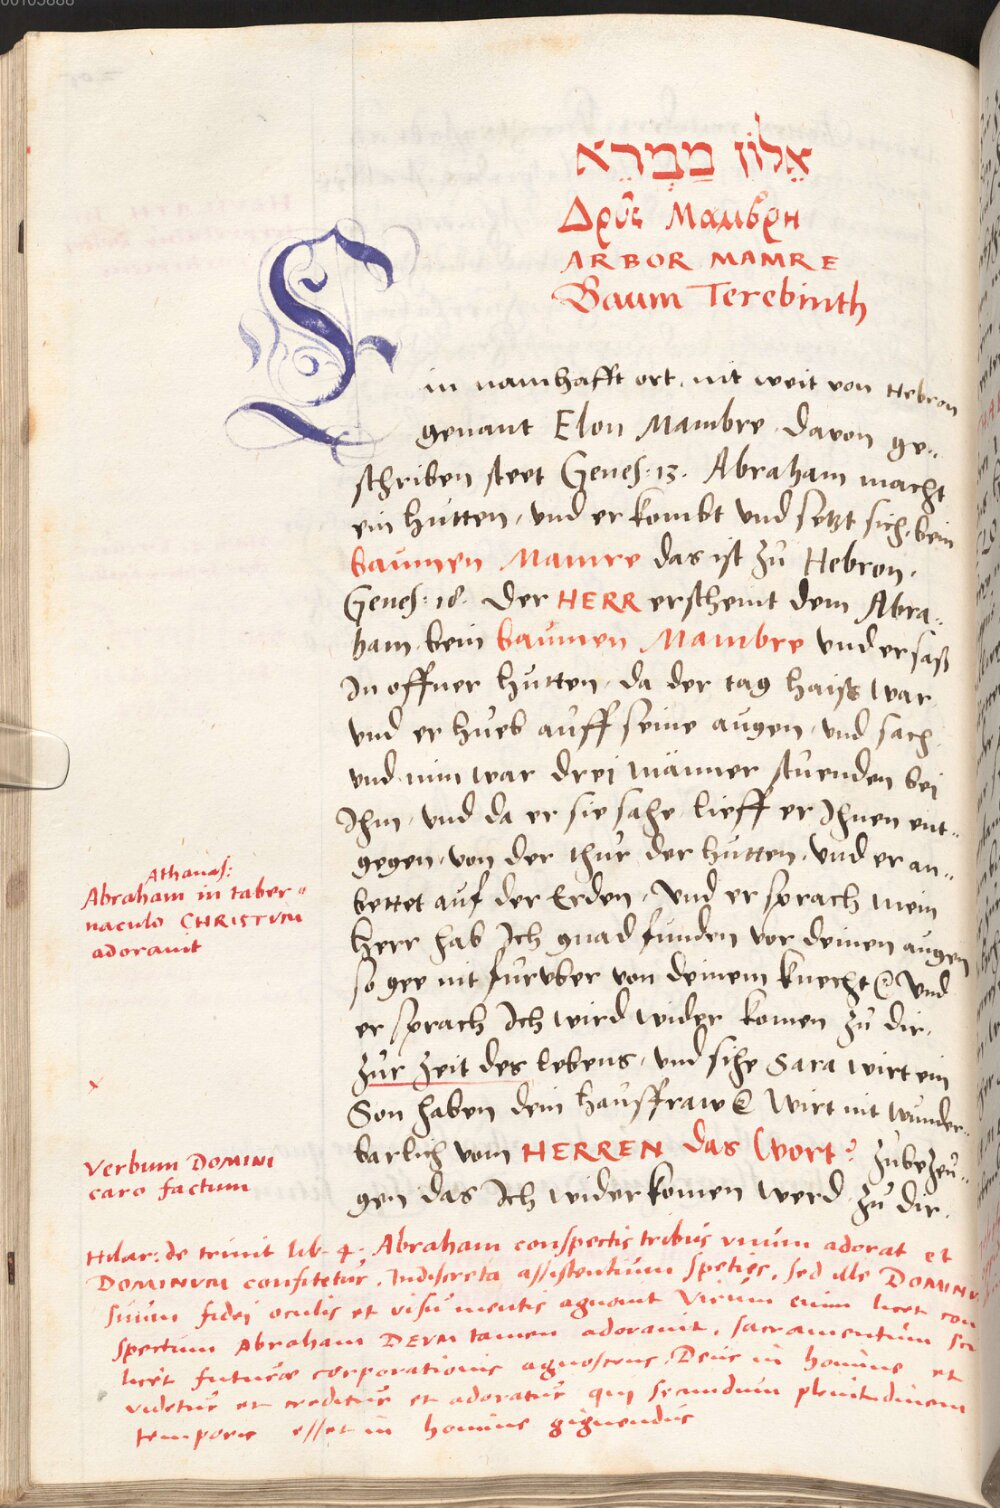 00105888
אֵלוֹן מַמְרֵא
Δρῦς Μαμβρη
ARBOR MAMRE
Baum Terebinth
Ein namhafft ort, nit weit von Hebron
genant Elon Mambre. davon ge„
schriben steet Genes: 13. Abraham macht
ein hutten, und er kombt und setzt sich, bein
baumen Mamre das ist zů Hebron.
Genes: 18. Der HERR erscheint dem Abra„
ham, bein baumen Mambre und er saß
In offner hutten, da der tag haiss war
und er hueb auff seine augen, und sach,
und nim war drei männer stuenden bei
Ihm, und da er sie sahe, lieff er Ihnen ent„
gegen, von der thur der hutten, und er an„
bettet auf der Erden, und er sprach mein
Herr hab Ich gnad funden vor deinen augen
so gee nit furuber von deinem knecht @ Und
er sprach Ich wird wider komen zů dir,
zur zeit des lebens, und sihe Sara wirt ein
Son haben dein hausfraw @ Wirt nit wunder„
barlich vom HERREN das Wort? zubezeu„
gen das Ich wider komen werd zů dir.
Athanas:
Abraham in taber„
naculo CHRISTUM
adoravit
Verbum DOMINI
caro factum
Hilar: de trinit lib. 4. Abraham conspectis tribus unum adorat et
DOMINUM confitetur. Indiscreta assistentium speties, sed ille DOMINU
suum fidei oculis et visu mentis agnovit Virum enim licet con
spectum Abraham DEUM tamen adoravit, sacramentum sci
licet futuræ corporationis agnoscens. Deus in homine et
videtur et creditur et adoratur qui secundum plenitudinem
temporis esset in homine gignendus